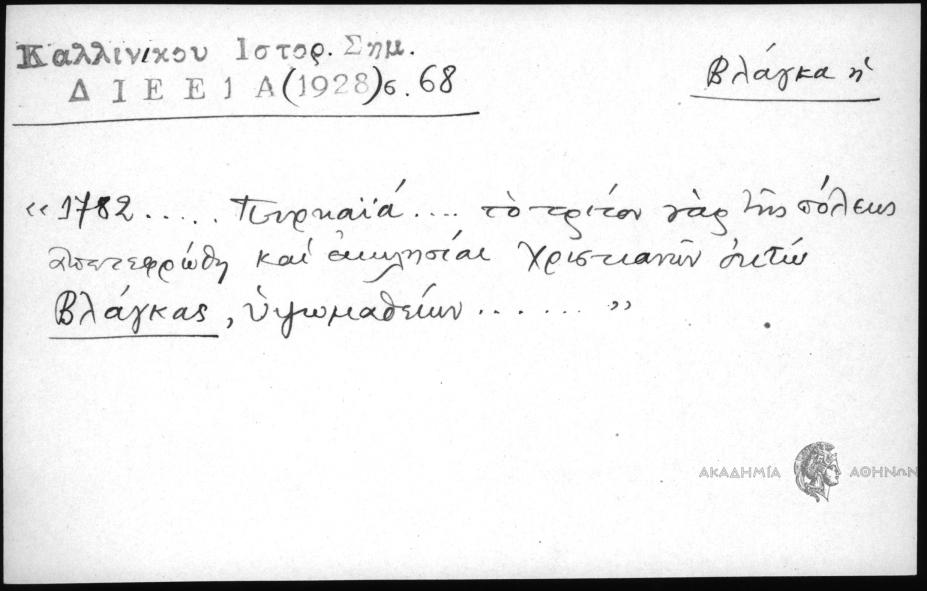 Καλλινίκου Ιστορ. Σημ.
Δ Ι Ε Ε 1 Α (1928) σ. 68
Βλάγκα ἡ
«1782 ..... Πυρκαϊά .... τὸ τρίτον γὰρ τῆς πόλεως
ἀπετεφρώθη καὶ ἐκκλησίαι Χριστιανῶν ὀκτώ
Βλάγκας, ὑψωμαθείων ...... »
ΑΚΑΔΗΜΙΑ ΑΘΗΝΩΝ